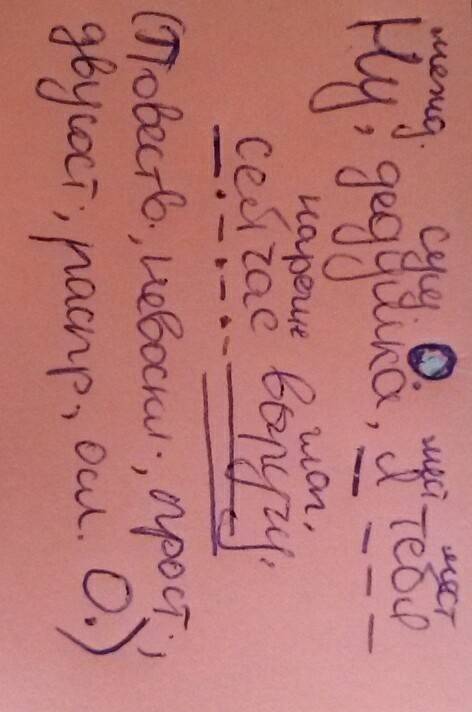 межд. сущ мест мест
Ну, дедушка, я тебя
нареч глаг.
сейчас выручу.
(Повеств., невоскл., прост.,
двусост., распр., осл. О.)